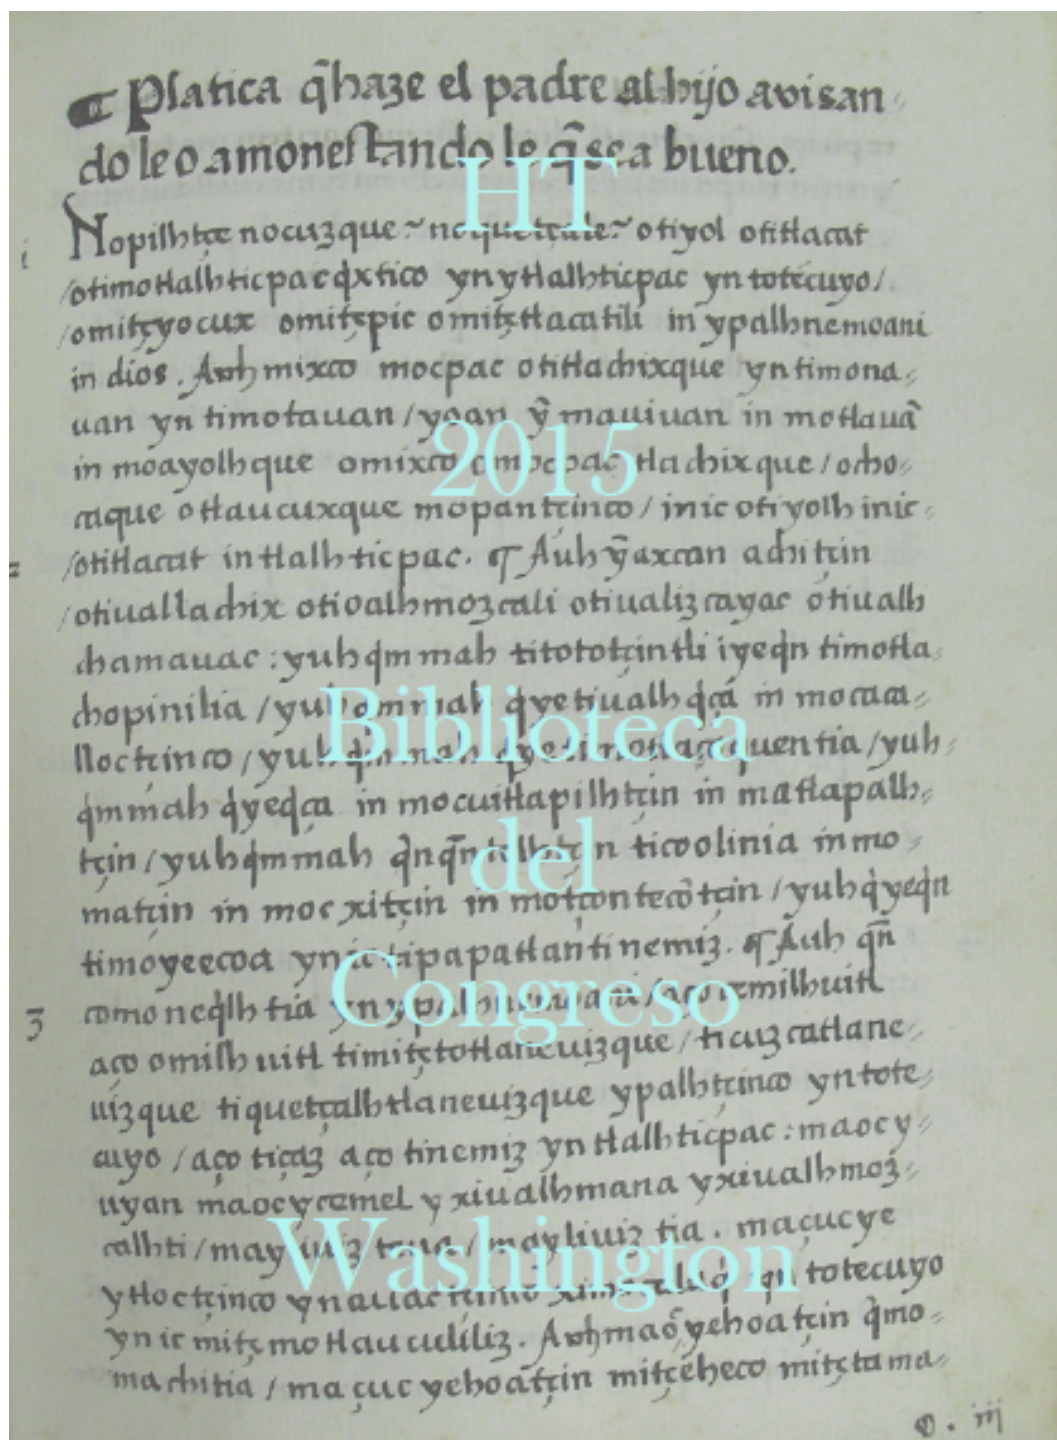 ¶ Platica q̃ haze el padre al hijo avisan⸗
do le o amonestando le q̃ sea bueno.
Nopilhtçe nocuzque~ noquetçale~ otiyol otitlacat
/otimotlalhticpac q̇xtico yn ytlalhticpac yn totecuyo/
/omitçyocux omitçpic omitçtlacatili in ypalhnemoani
in dios. Auh mixco mocpac otitlachixque yn timona⸗
uan yn timotauan / yoan yȳ mauiuan in motlauã
in moayolhque omixco omocpac tlachixque / ocho⸗
caque otlaucuxque mopantçinco / inic otiyolh inic⸗
/otitlacat in tlalhticpac. ¶ Auh ȳaxcan achitçin
/otiuallachix otioalhmozcali otiualizcayac otiualh
chamauac : yuhq̇mmah titototçintli iyeq̇n timotla⸗
chopinilia / yuhq̇mmah q̇yetiualhq̇çá in mocaca⸗
lloctçinco / yuhq̇mmah q̇yetimotlaçaquentia / yuh⸗
q̇mmah q̇yeq̇ça in mocuitlapilhtçin in matlapalh⸗
tçin / yuhq̇mmah q̇nq̃ntelhtçin ticoolinia in mo⸗
matçin in mocxitçin in motçontecõtçin / yuhq̇yeq̇n
timoyeecoa ynic tipapatlantinemiz. ¶ Auh q̃n
comoneq̇lhtia yn ypalhnemoani / aço cemilhuitl
aço omilhuitl timitçtotlaneuizque / ticuzcatlane⸗
uizque tiquetçalhtlaneuizque ypalhtçinco yn tote⸗
cuyo / aço ticaz aço tinemiz yn tlalhticpac : maocy⸗
uyan maocycemel yxiualhmana yxiualhmoz⸗
calhti / mayiuiz tçua / mayiiuiz tia. maçucye
ytloctçinco ynauactçinco ximocalaq̇ yn totecuyo
yn ic mitçmotlaucuililiz. Auhmaõ yehoatçin q̇mo⸗
machitia / maçuc yehoatçin mitçeheco mitçtama⸗
D. iij
i
=
3
HT
2015
Biblioteca
del
Congreso
Washington